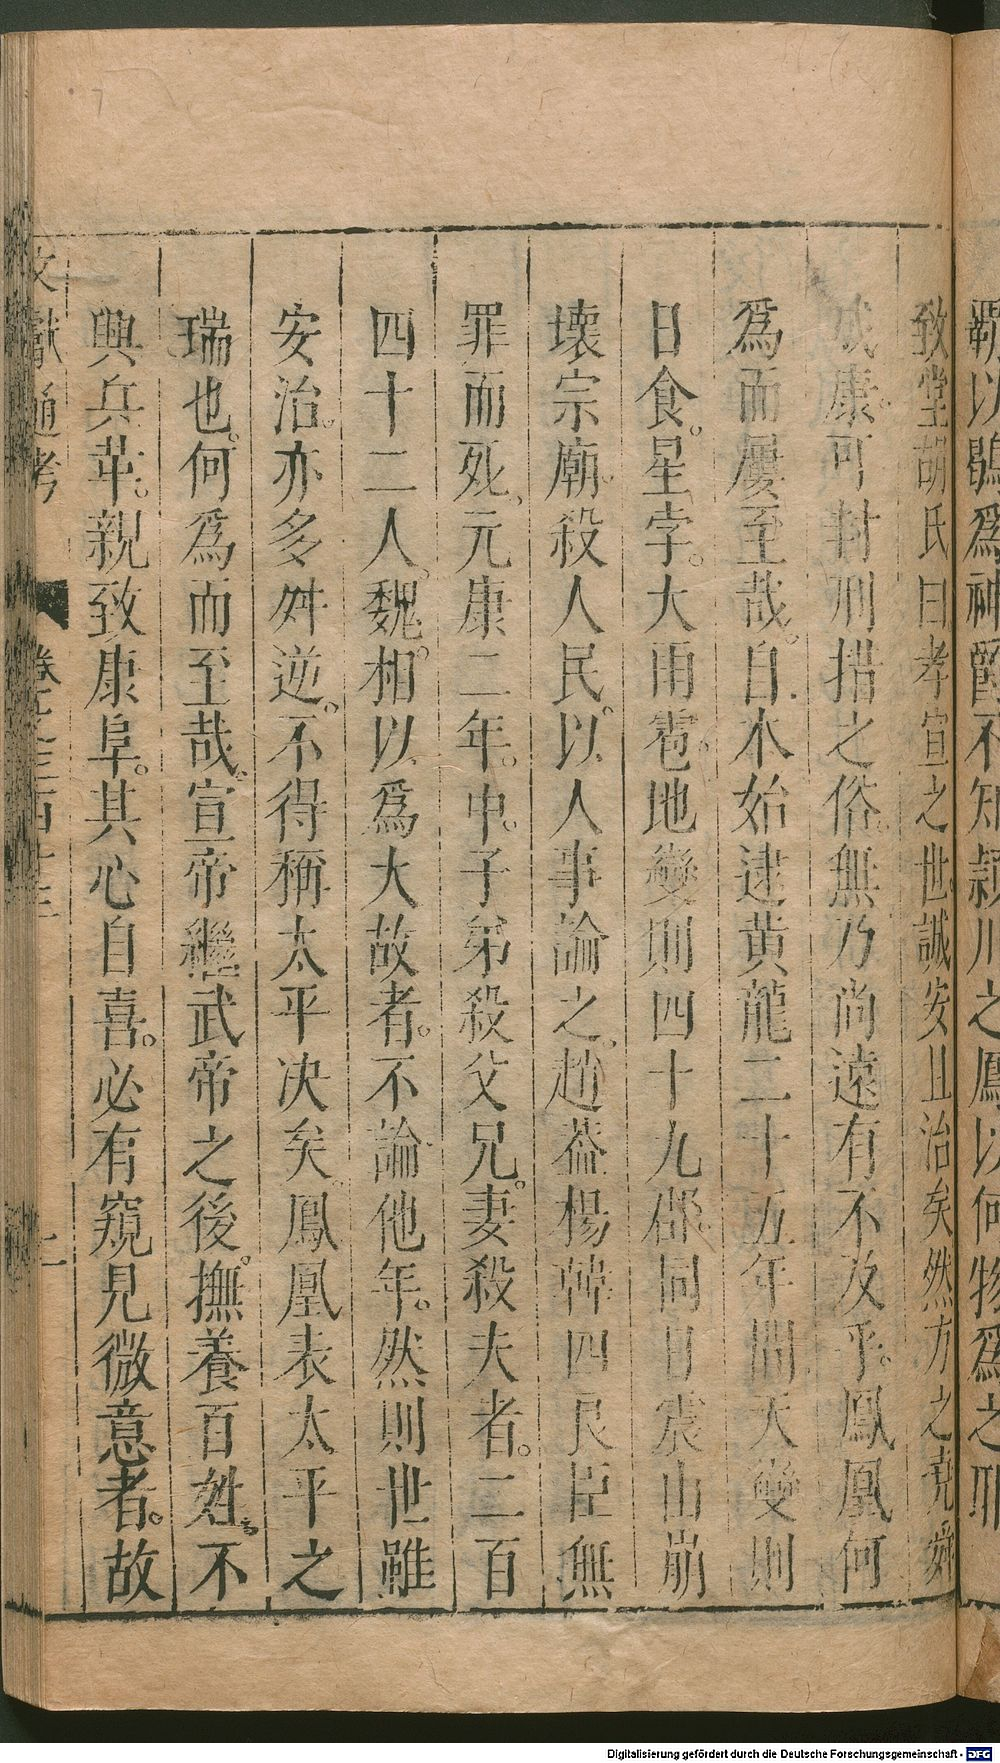 覇以鶡爲神爵不知潁川之鳳以何物爲之耶
致堂胡氏曰孝宣之世誠安且治矣然方之堯舜
成康可封刑措之俗無乃尚遠有不及乎鳳凰何
爲而屢至哉自本始逮黄龍二十五年間天變則
日食星孛大雨雹地變則四十九郡同日震山崩
壞宗廟殺人民以人事論之趙葢楊韓四良臣無
罪而死元康二年中子弟殺父兄妻殺夫者二百
四十二人魏相以爲大故者不論他年然則世雖
安治亦多舛逆不得稱太平决矣鳳凰表太平之
瑞也何爲而至哉宣帝繼武帝之後撫養百姓不
興兵革親致康阜其心自喜必有窺見微意者故
文獻通考
Digitalisierung gefördert durch die Deutsche Forschungsgemeinschaft - DFG